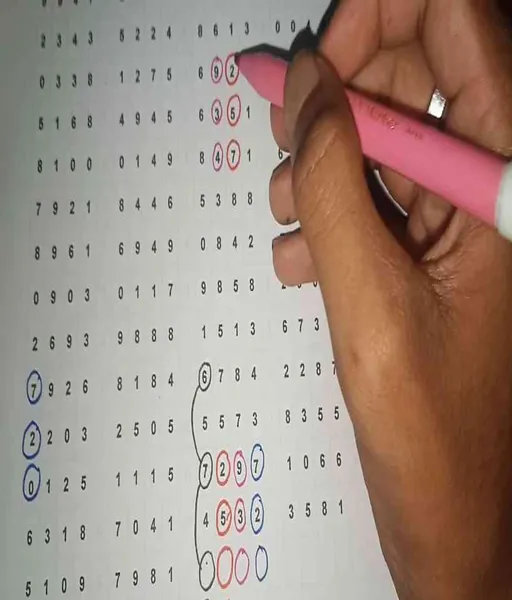 2 3 4 3 5 2 2 4 8 6 1 3 0 0
0 3 3 8 1 2 7 5 6 9 2
5 1 6 8 4 9 4 5 6 3 5 1
8 1 0 0 0 1 4 9 8 4 7 1 6
7 9 2 1 8 4 4 6 5 3 8 8
8 9 6 1 6 9 4 9 0 8 4 2
0 9 0 3 0 1 1 7 9 8 5 8
2 6 9 3 9 8 8 8 1 5 1 3 6 7 3
7 9 2 6 8 1 8 4 6 7 8 4 2 2 8 7
2 2 0 3 2 5 0 5 5 5 7 3 8 3 5 5
0 1 2 5 1 1 1 5 7 2 9 7 1 0 6 6
6 3 1 8 7 0 4 1 4 5 3 2 3 5 8 1
5 1 0 9 7 9 8 1